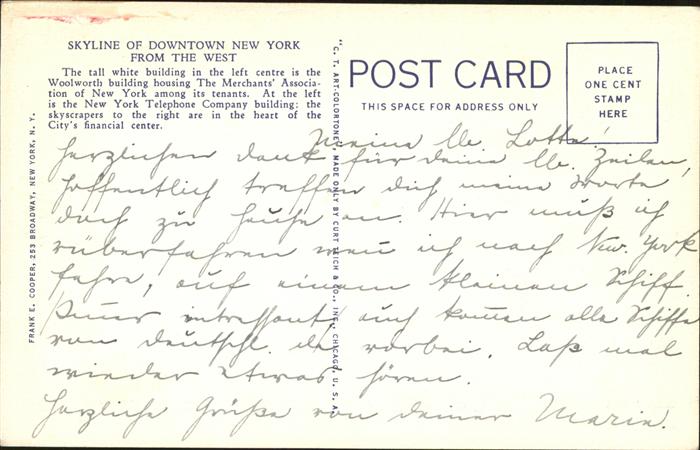 SKYLINE OF DOWNTOWN NEW YORK
FROM THE WEST
The tall white building in the left centre is the
Woolworth building housing The Merchants' Associa-
tion of New York among its tenants. At the left
is the New York Telephone Company building: the
skyscrapers to the right are in the heart of the
City's financial center.
FRANK E. COOPER, 253 BROADWAY, NEW YORK, N. Y.
"C. T. ART-COLORTONE" MADE ONLY BY CURT TEICH & CO., INC., CHICAGO, U. S. A.
POST CARD
THIS SPACE FOR ADDRESS ONLY
PLACE
ONE CENT
STAMP
HERE
Meine lb. Lotte!
Herzlichen dank für deine lb. Zeilen,
hoffentlich treffen dich meine Worte
doch zu hause an. Hier muß ich
rüberfahren wen ich nach Nw. York
fahre, auf einem kleinen Schiff
intressant auch kommen alle Schiffe
von deutschl. da vorbei. Laß mal
wieder etwas hören.
Herzliche Grüße von deiner Marie.